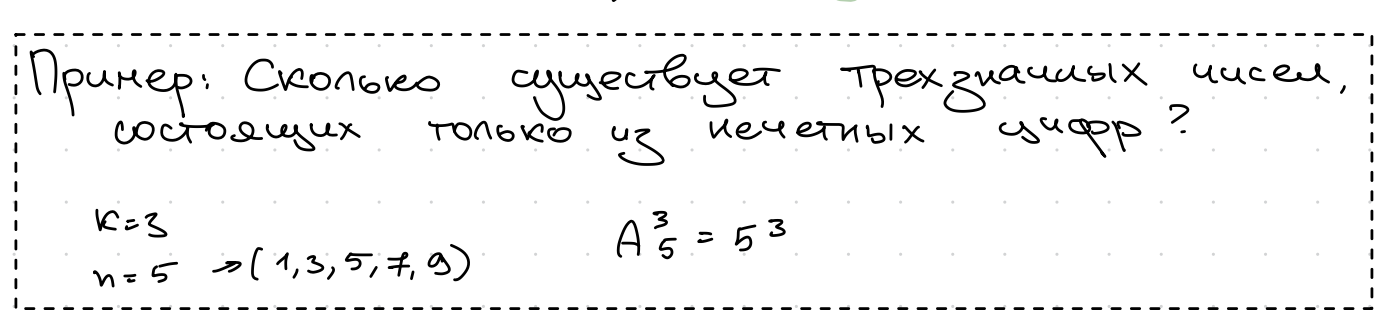 Пример: Сколько существует трехзначных чисел,
состоящих только из нечетных цифр?
k=3
n=5 → (1,3,5,7,9)
A³₅ = 5³